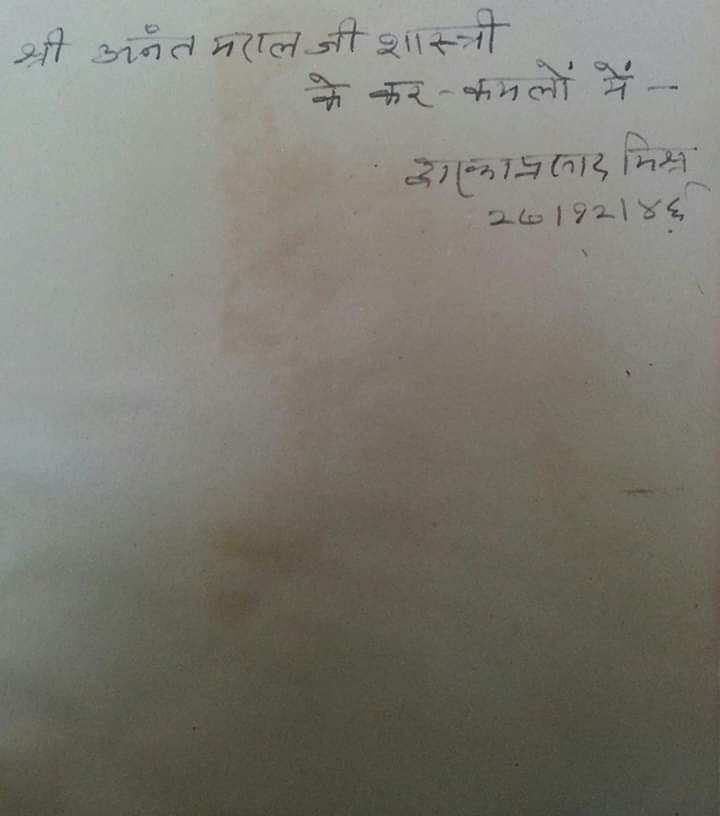 श्री अनंत मराल जी शास्त्री
के कर-कमलों में—
द्वारकाप्रसाद मिश्र
२७।१२।४६